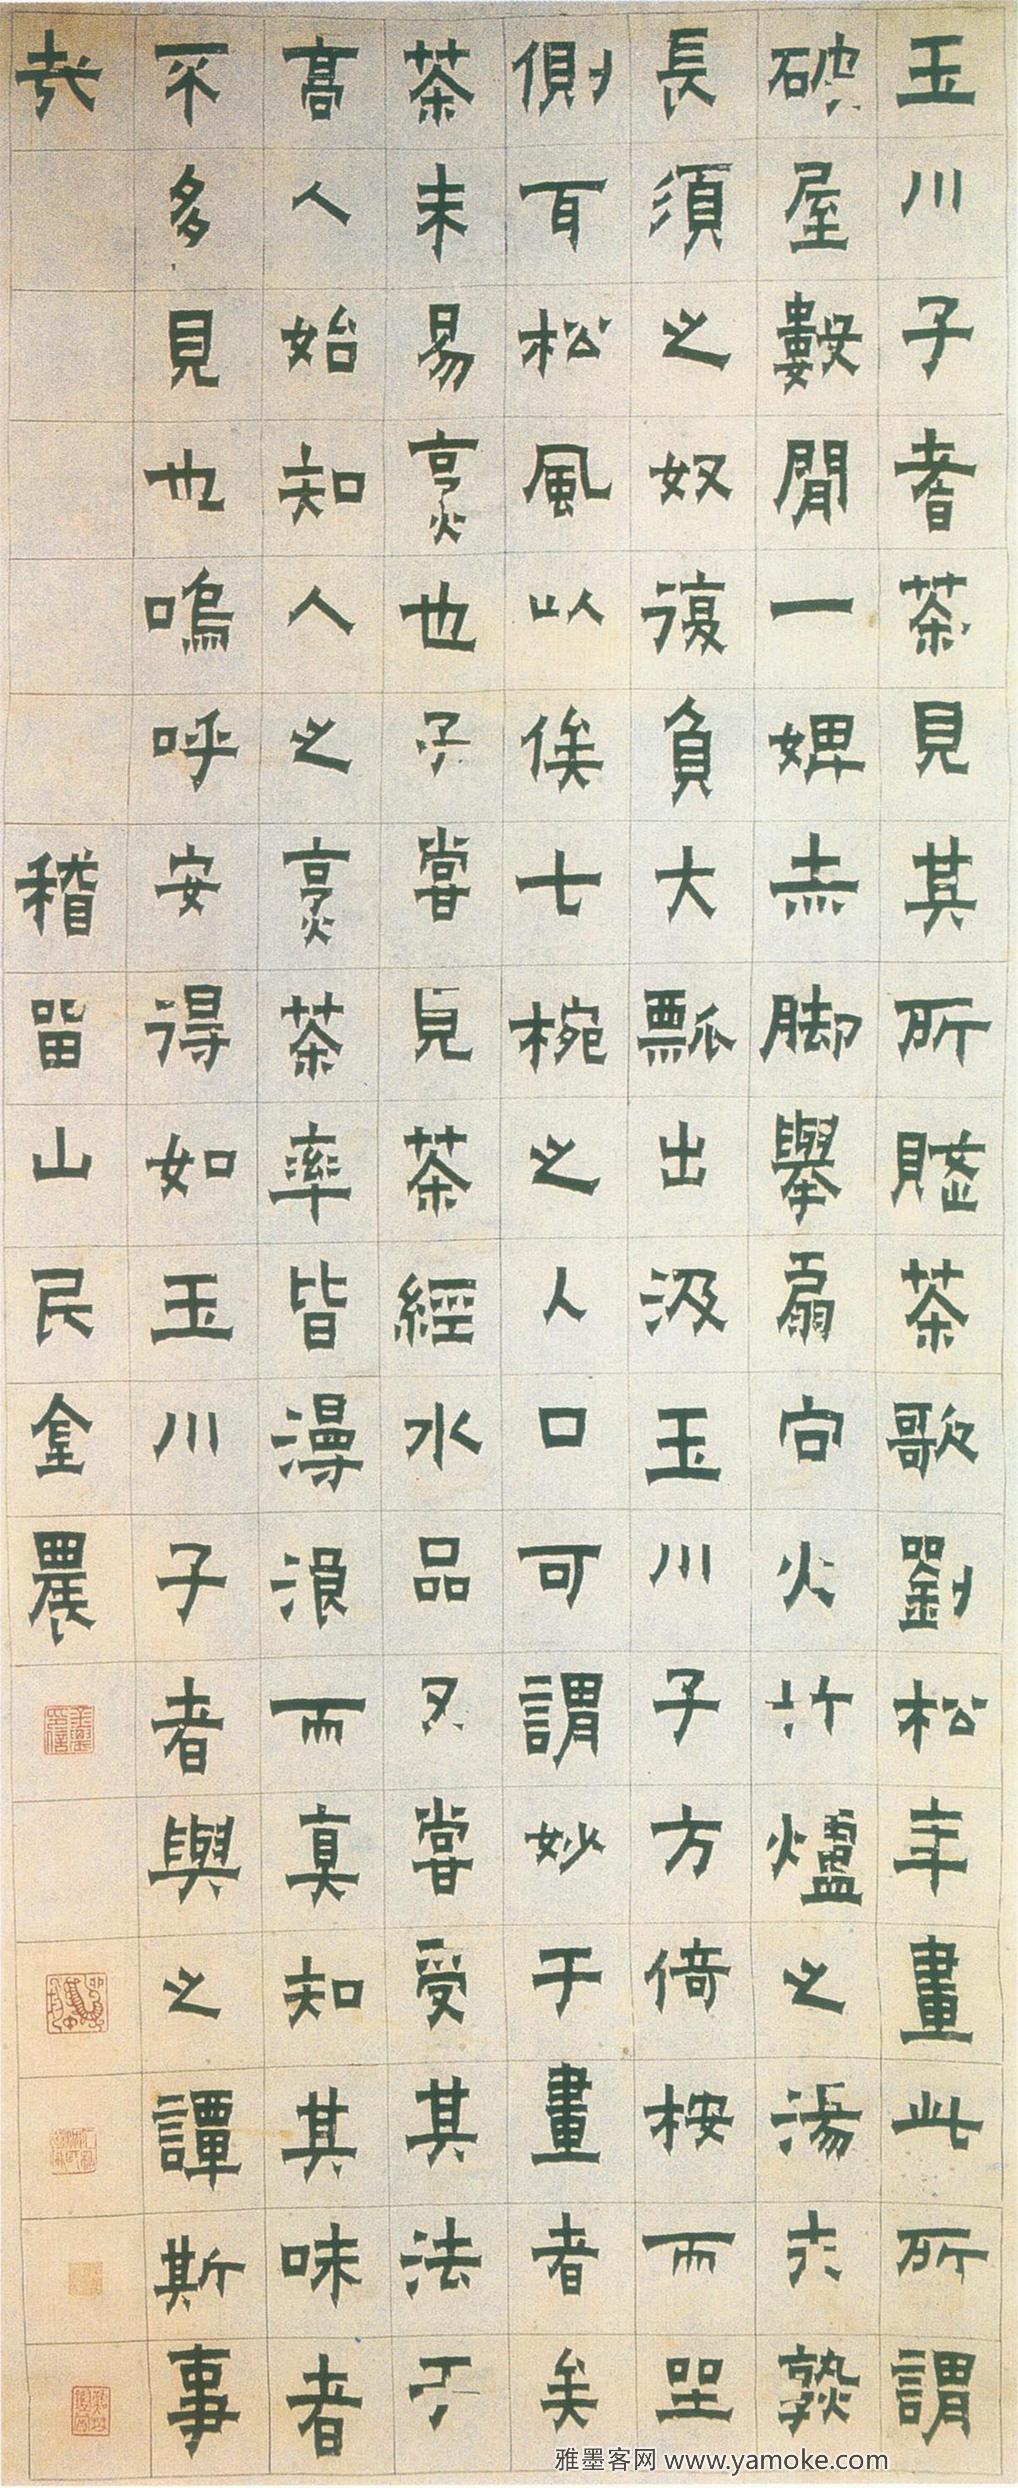 玉川子耆茶見其所賦茶歌劉松年畫此所謂
破屋數間一婢赤脚舉扇向火竹爐之湯未熟
長須之奴復負大瓢出汲玉川子方倚桉而坐
側耳松風以俟七椀之入口可謂妙于畫者矣
茶未易烹也予嘗見茶經水品又嘗受其法于
高人始知人之烹茶率皆漫浪而真知其味者
不多見也嗚呼安得如玉川子者與之譚斯事
哉 稽留山民金農
雅墨客网 www.yamoke.com